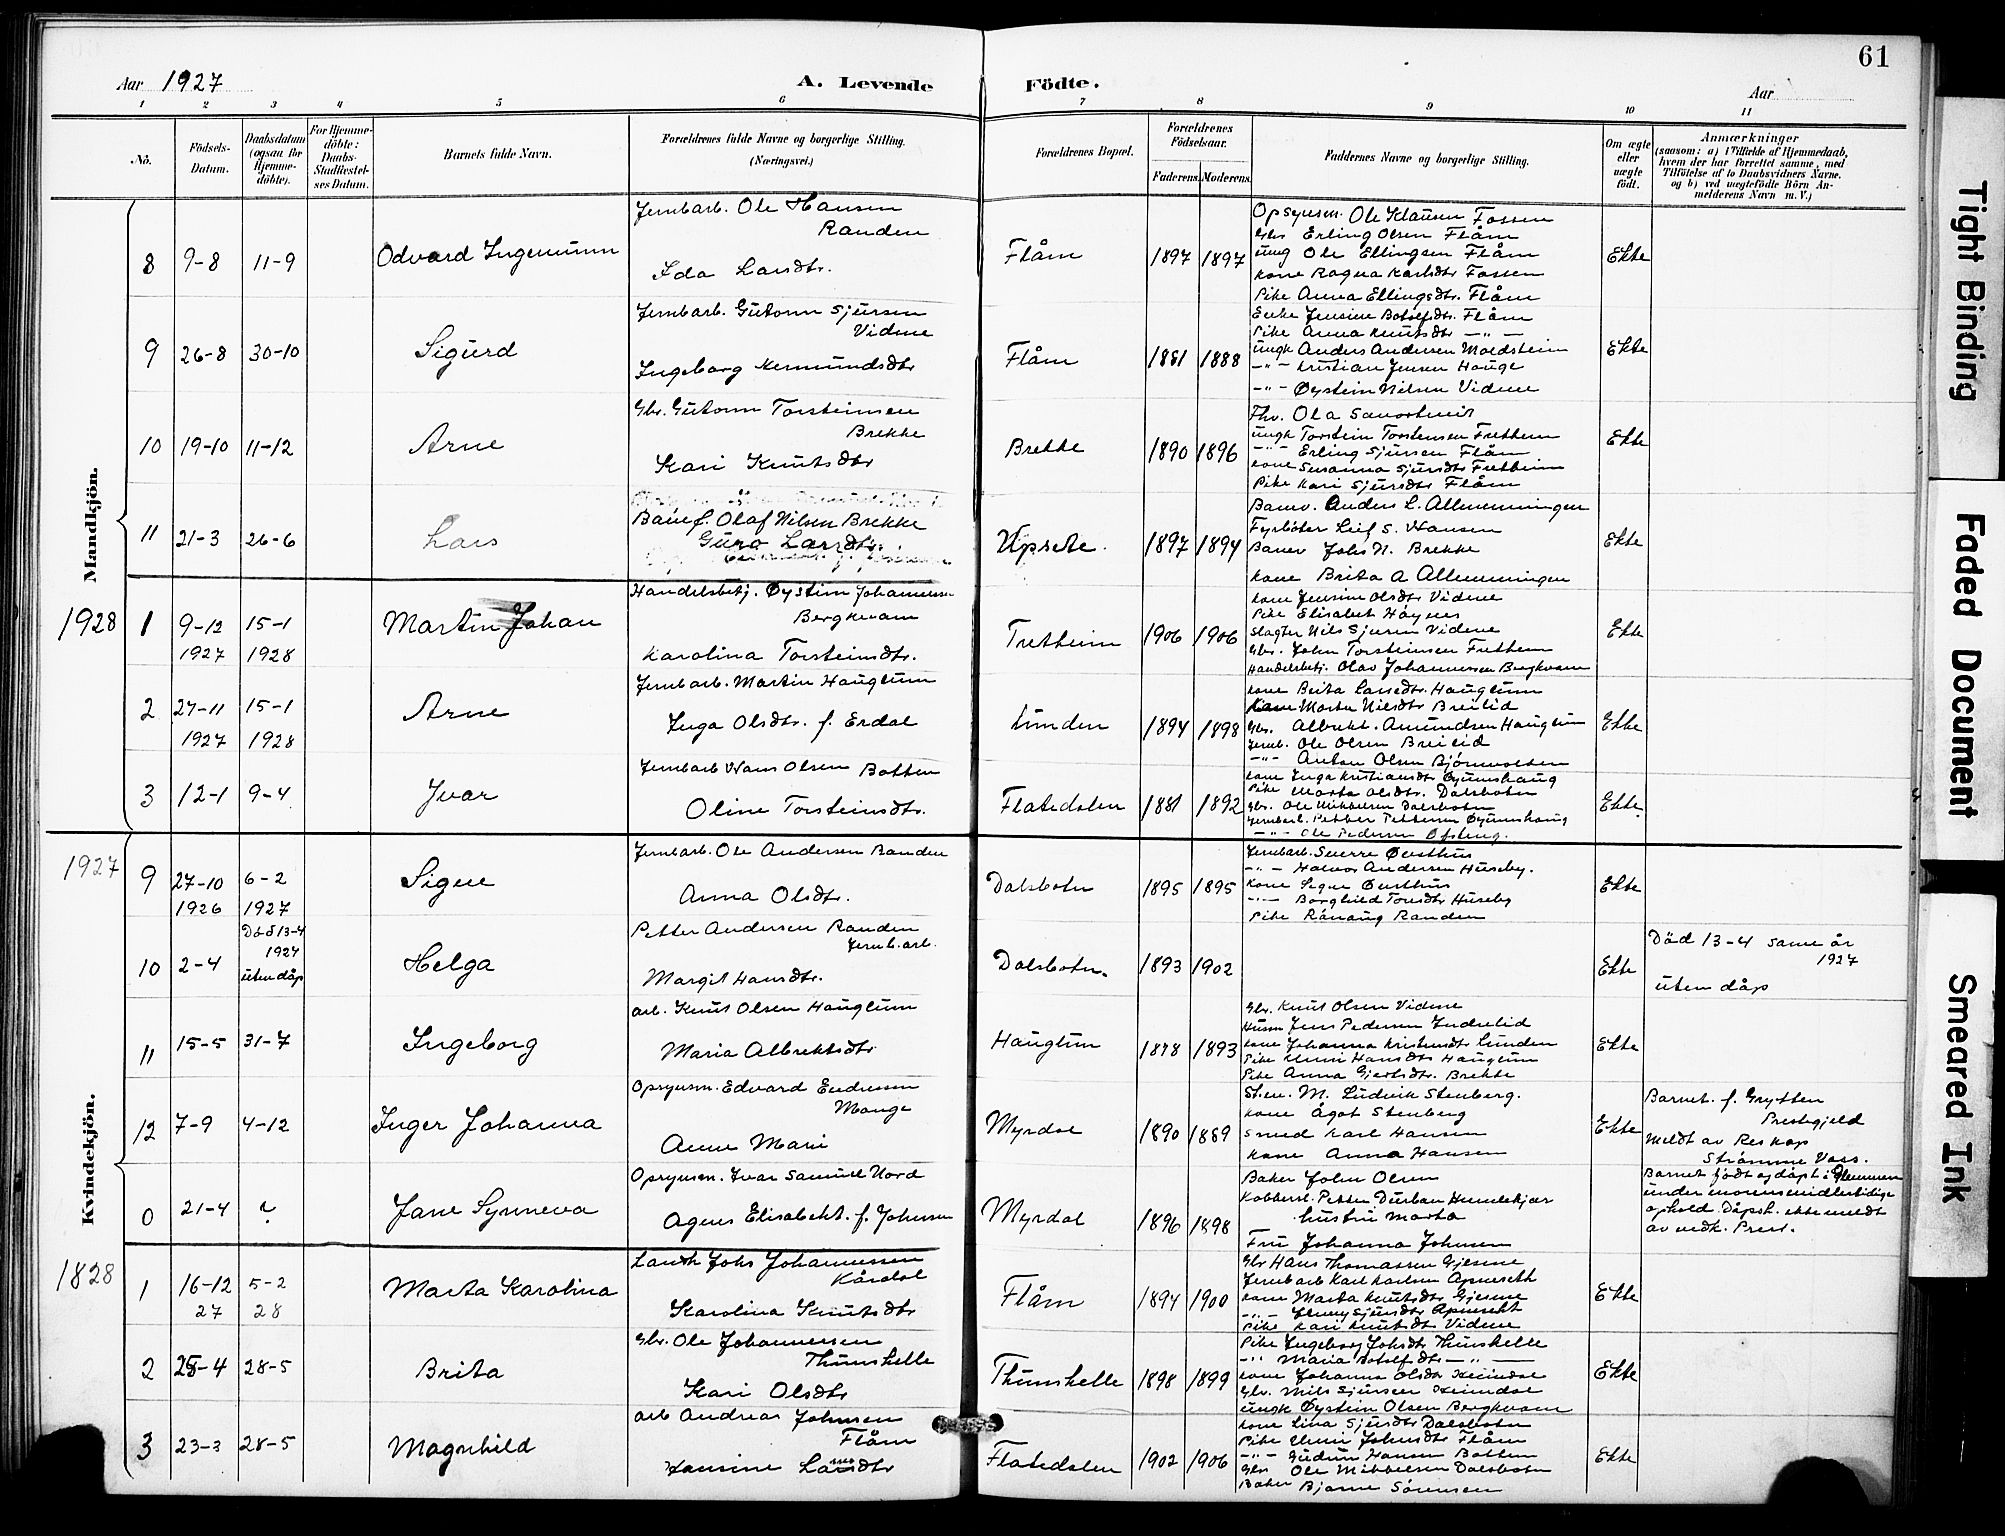 61
Aar 1927
A. Levende Födte.
Aar
1 2 3 4 5 6 7 8 9 10 11
No.
Födsels-Datum.
Daabsdatum (ogsaa for Hjemme-döbte).
For Hjemme-döbte: Daabs-Stadfæstel-ses Datum.
Barnets fulde Navn.
Forældrenes fulde Navne og borgerlige Stilling. (Næringsvei.)
Forældrenes Bopæl.
Forældrenes Födselsaar.
Faderens. Moderens.
Faddernes Navne og borgerlige Stilling.
Om ægte eller uægte födt.
Anmærkninger
(saasom: a) i Tilfælde af Hjemmedaab, hvem der har forrettet samme, med Tilföielse af to Daabsvidners Navne. og b) ved uægtefödte Börn An-melderens Navn m. V.)
Mandkjön.
8 9-8 11-9 Odvard Ingemunn
Jernbarb. Ole Hansen
Randen
Ida Larsdtr.
Flåm 1897 1897
Opsynsm. Ole Klausen Fossen
Gbr Erling Olsen Flåm
ung Ole Ellingsen Flåm
kone Ragna Karlsdtr Fossen
Pike Anna Ellingsdtr. Flåm
Ekte
9 26-8 30-10 Sigurd
Jernbarb. Gutorm Sjursen
Vidme
Ingeborg Kermundsdtr
Flåm 1881 1888
Enke Jensine Botolfsdtr. Flåm
Pike Anna Knutsdtr -"-
ungk Anders Andersen Moldsteim
-"- Kristian Jensen Hauge
-"- Øystein Nilsen Vidme
Ekte
10 19-10 11-12 Arne
Gbr. Gutorm Torsteinsen
Brekke
Kari Knutsdtr
Brekke 1890 1896
Fhv. Ola
ungk Torstein Torstensen Frettem
-"- Erling Sjursen Flåm
kone Susanna Sjursdtr Fretheim
Pike Kari Sjursdtr Flåm
Ekte
11 21-3 26-6 Lars
Banef. Olaf Nilsen Brekke
Guro Larsdtr.
Upsete. 1897 1894
Banv. Anders L. Allmenningen
Fyrbøter Leif S. Hansen
Banev Johs N. Brekke
kone Brita A Allmenningen
Ekte
1928
1 9-12 1927 15-1 1928 Martin Johan
Handelsbetj. Øystein Johannessen
Bergkvam
Karolina Torsteinsdtr.
Fretheim 1906 1906
kone Jensine Olsdtr Vidme
Pike Elisabet Høynes
Slagter Nils Sjursen Vidme
Gbr. John Torsteinsen Frettem
Handelsbetj. Olav Johannessen Bergkvam
Ekte
2 27-11 1927 15-1 1928 Arne
Jernbarb. Martin Hauglum
Inga Olsdtr. f. Erdal
Lunden 1894 1898
kone Brita Larsdtr. Hauglum
Kone Marta Nilsdtr Breilid
Gbr. Albrekt. Amundsen Hauglum
Jernb. Ole Olsen Breilid
-"- Anton Olsen Bjørnvolten
Ekte
3 12-1 9-4 Ivar
Jernbarb Hans Olsen Botten
Oline Torsteinsdtr.
Flatedalen 1881 1892
kone Inga Kristiansdtr Gjumshaug
Pike Marta Olsdtr. Dalsbotn
Gbr. Ole Mikkelsen Dalsbotn
Jernbarb. Petter Pettersen Gjumshaug
-"- Ole Pedersen Ofsteng.
Ekte.
Kvindekjön.
1927
9 27-10 1926 6-2 1927 Signe
Jernbarb. Ole Andersen Randen
Anna Olsdtr.
Dalsbotn 1895 1895
Jernbarb. Sverre Østhus
-"- Halvor Andersen Huseby.
Kone Signe Østhus
-"- Borghild Toresdtr Huseby
Pike Rånaug Randen
Ekte
10 2-4 Død 13-4 1927 uten dåp Helga
Petter Andersen Randen
Jernb.arb.
Margit Hansdtr.
Dalsbotn. 1893 1902
Ekte
Död 13-4 same år
1927
uten dåp
11 15-5 31-7 Ingeborg
arb. Knut Olsen Hauglum
Maria Albrektsdtr
Hauglum 1878 1893
Gbr. Knut Olsen Vidme
Husm Jens Pedersen Indrelid
kone Johanna Kristensdtr Lunden
Pike Unni Hansdtr Hauglum
Pike Anna Gjertsdtr. Brekke
Ekte
12 7-9 4-12 Inger Johanna
Opsynsm. Edvard Endresen
Mange
Anne Marie
Myrdal 1890 1889
St.en. M. Ludvik Stenberg.
kone Ågot Stenberg
Smed Karl Hansen
kone Anna Hansen
Ekte
Barnet f. Grytten
Prestegjeld
meldt av Reskap
Strømme Voss.
0 21-4 ? Jane Synneva
Opsynsm. Ivar Samuel Nord
Agnes Elisabeht. f. Johnsen
Myrdal 1896 1898
Baker John Olsen
Kobbersl. Petter Durban Humlekjær
hustru Marta
Fru Johanna Johnsen
Barnet født og døpt i
under morens midlertidige
ophold. Dåpsh. ikke meldt
av vedk. Prest.
1828
1 16-12 27 5-2 28 Marta Karolina
Landh Johs Johannessen
Kårdal
Karolina Knutsdtr
Flåm 1894 1900
Gbr Hans Thomassen Gjesme
Jernbarb Karl Karlsen Apneseth
kone Marta Knutsdtr Gjesme
-"- Jenny Sjursdtr Apneseht
Pike Kari Knutsdtr Vidme
Ekte
2 25-4 28-5 Brita
Gbr. Ole Johannessen
Thunshelle
Kari Olsdtr
Thunshelle 1898 1899
Pike Ingeborg Johsdtr Thunshelle
-"- Maria Botolfsdtr -"-
kone Johanna Olsdtr Heimdal
Gbr. Nils Sjursen Heimdal
ungk Øystein Olsen Bergkvam
Ekte
3 23-3 28-5 Magnhild
arb Andreas Johnsen
Flåm
Hansine Larsdtr
Flatedalen 1902 1906
kone Lina Sjursdtr Dalsbotn
Pike Unni Johnsdtr Flåm
-"- Gudrun Hansen Botten
Gbr Ole Mikkelsen Dalsbotn
Baker Bjarne Sørensen
Ekte
Tight Binding
Faded Document
Smeared Ink